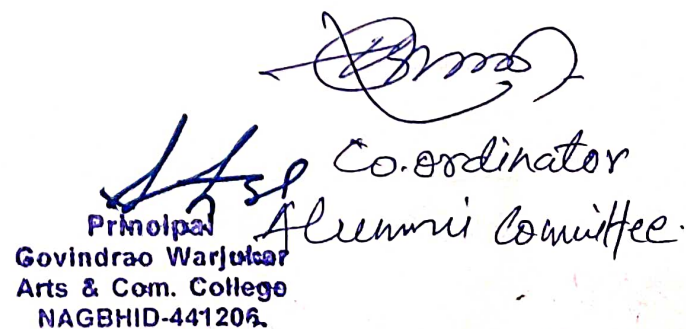 Co.ordinator
Alumni Committee.
Principal
Govindrao Warjukar
Arts & Com. College
NAGBHID-441206.